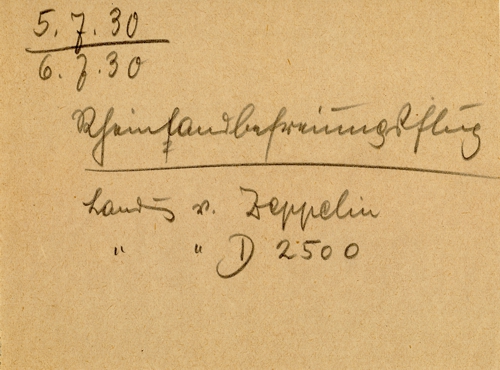 5.7.30
6.7.30
Rheinlandbefreiungsflug
Landg v. Zeppelin
" " D 2500